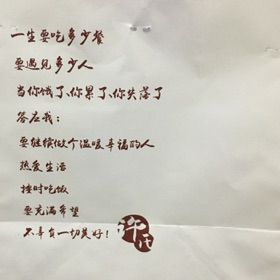 一生要吃多少餐
要遇见多少人
当你饿了、你累了、你失落了
答应我：
要继续做个温暖幸福的人
热爱生活
按时吃饭
要充满希望
不辜负一切美好！
许氏